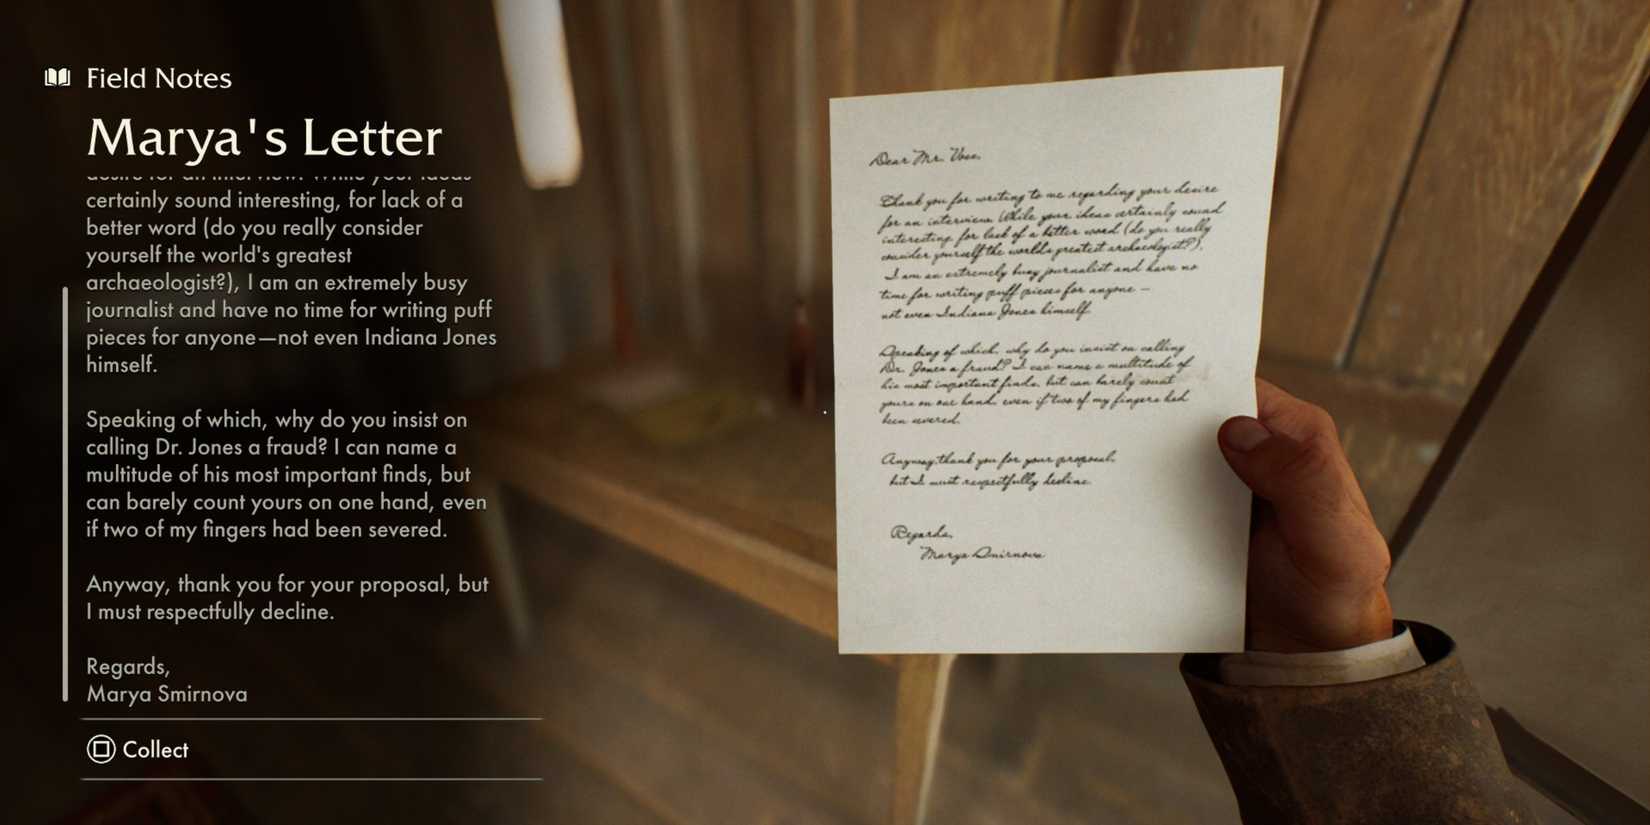 Field Notes
Marya's Letter
desire for an interview. While your ideas
certainly sound interesting, for lack of a
better word (do you really consider
yourself the world's greatest
archaeologist?), I am an extremely busy
journalist and have no time for writing puff
pieces for anyone—not even Indiana Jones
himself.
Speaking of which, why do you insist on
calling Dr. Jones a fraud? I can name a
multitude of his most important finds, but
can barely count yours on one hand, even
if two of my fingers had been severed.
Anyway, thank you for your proposal, but
I must respectfully decline.
Regards,
Marya Smirnova
Collect
Dear Mr. Voss,
Thank you for writing to me regarding your desire
for an interview. While your ideas certainly sound
interesting, for lack of a better word (do you really
consider yourself the world's greatest archaeologist?),
I am an extremely busy journalist and have no
time for writing puff pieces for anyone —
not even Indiana Jones himself.
Speaking of which, why do you insist on calling
Dr. Jones a fraud? I can name a multitude of
his most important finds, but can barely count
yours on one hand, even if two of my fingers had
been severed.
Anyway, thank you for your proposal,
but I must respectfully decline.
Regards,
Marya Smirnova